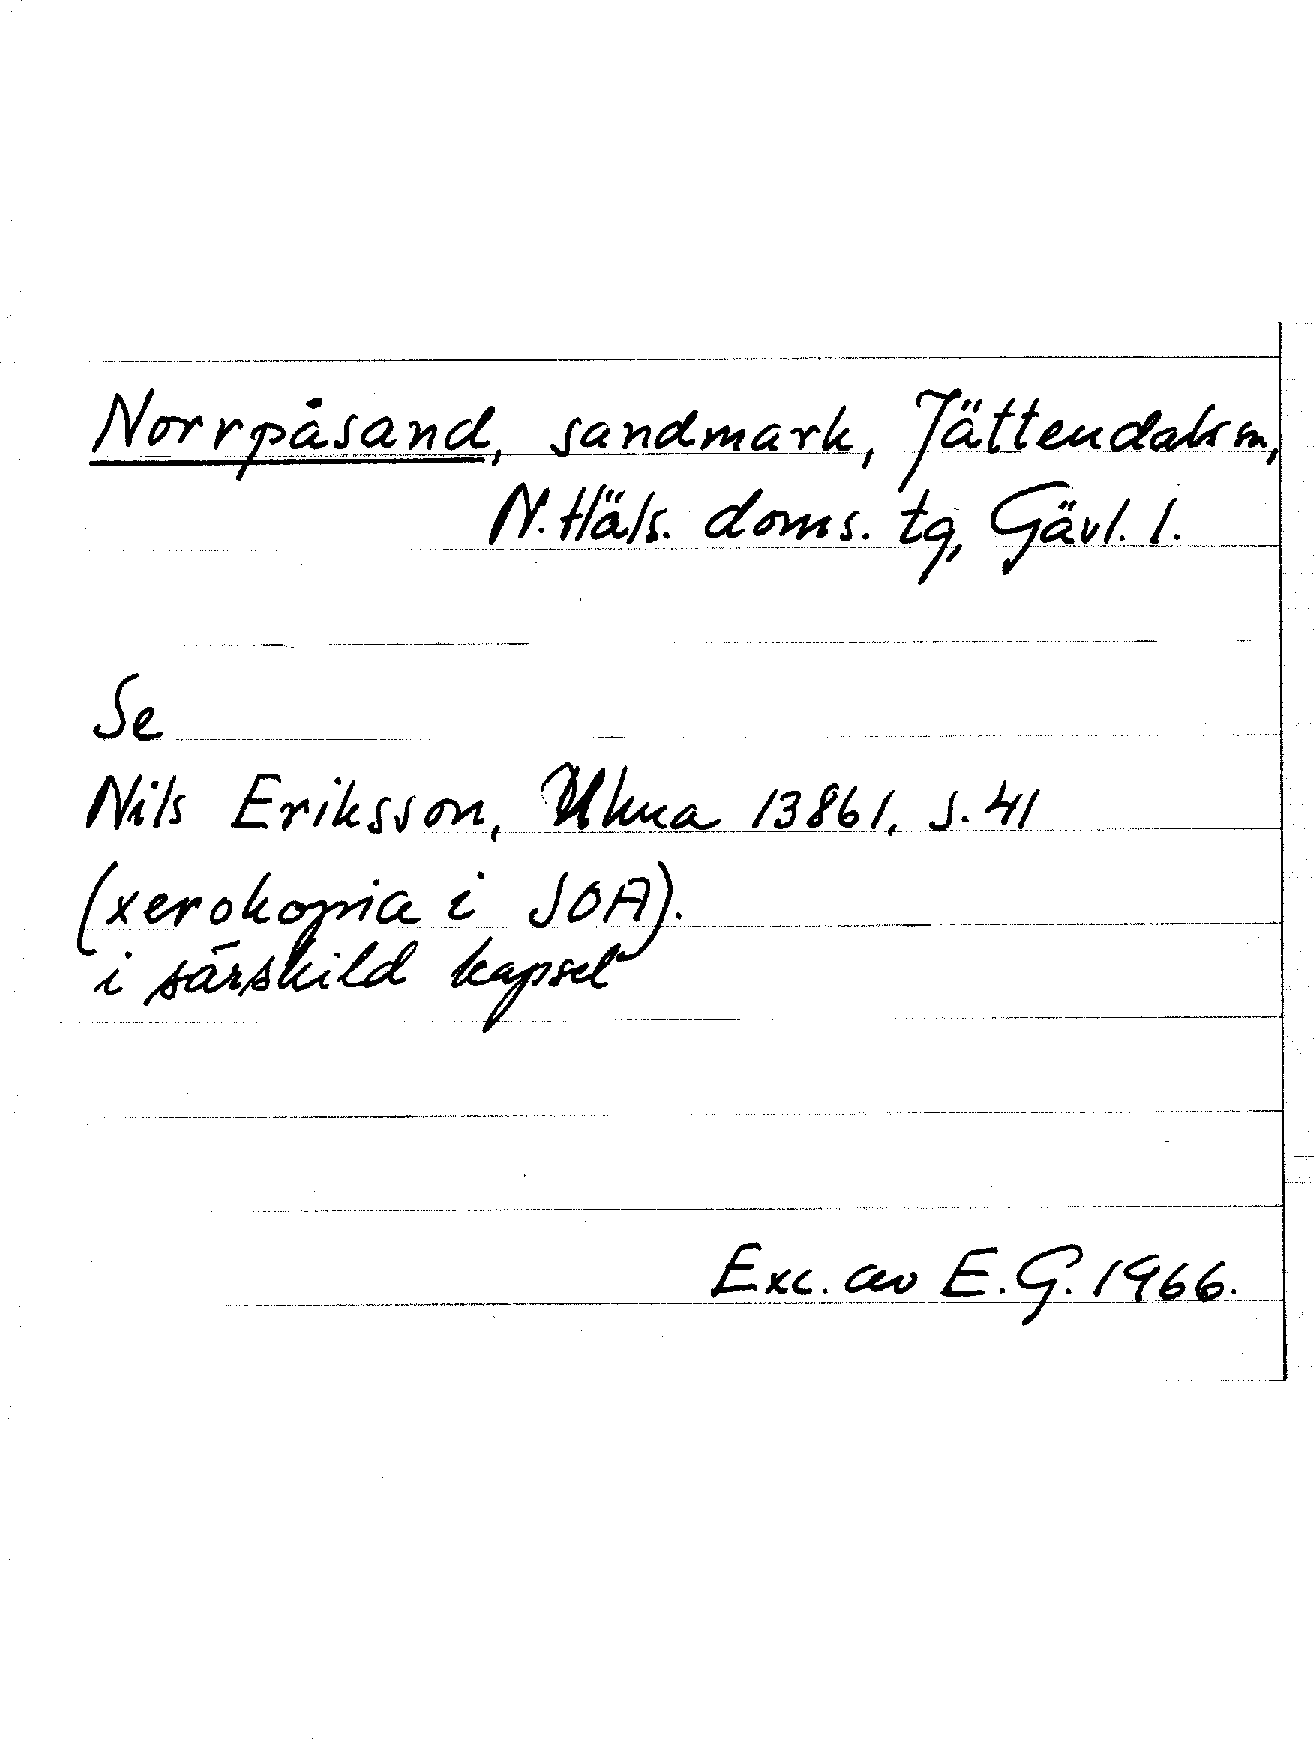 Norrpåsand, sandmark, Jättendals sn,
N. Häls. doms. tg, Gävl. l.
Se
Nils Eriksson, Ukua 13861, s. 41
(xerokopia i SOA).
i särskild kapsel
Exc. av E. G. 1966.